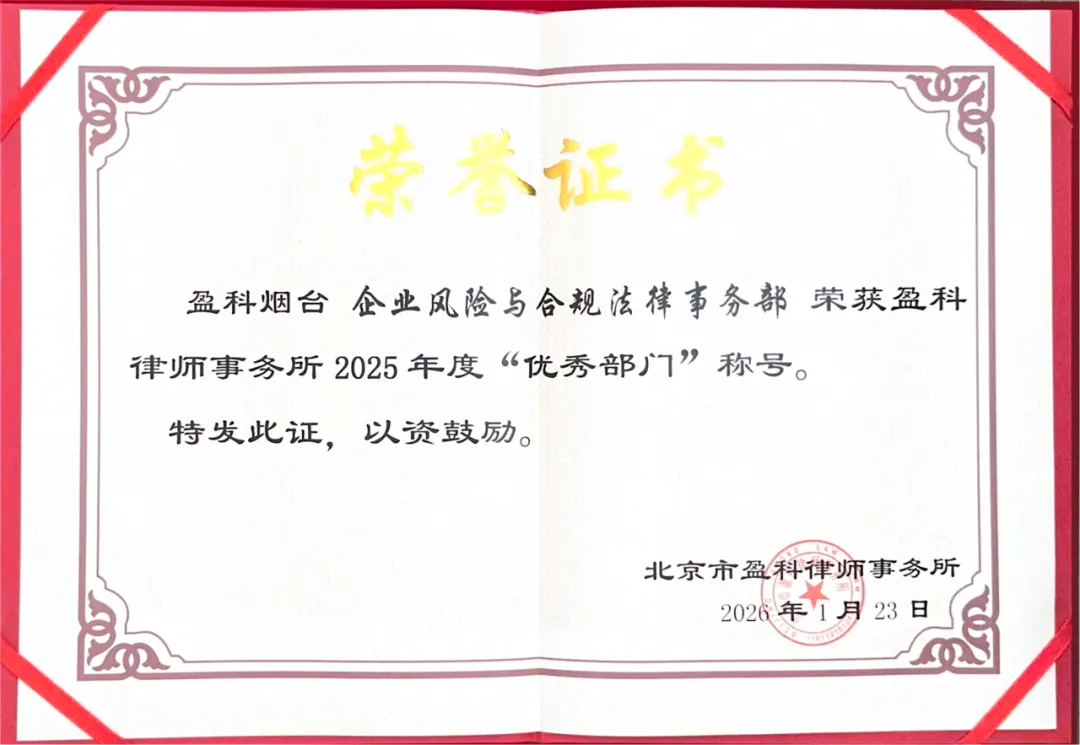 荣誉证书
盈科烟台 企业风险与合规法律事务部 荣获盈科
律师事务所 2025 年度“优秀部门”称号。
特发此证，以资鼓励。
北京市盈科律师事务所
2026 年 1 月 23 日